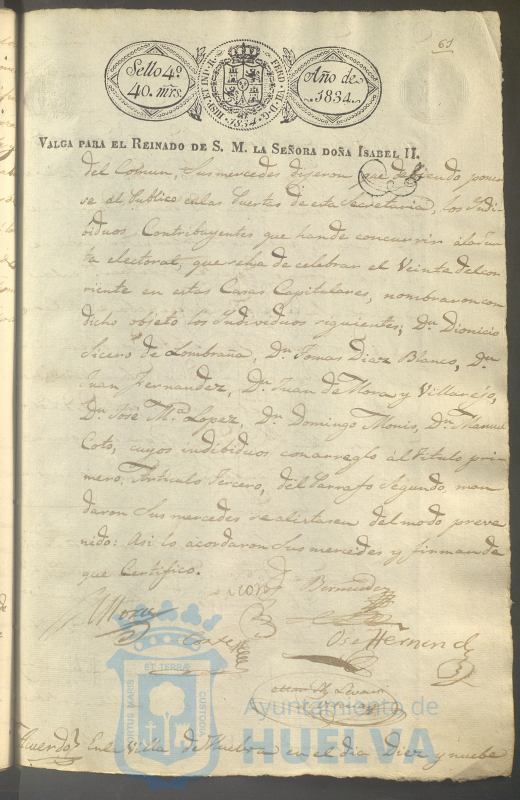 61
Sello 4º
40. mrs.
HISP. ET IND. R. FERD. VII. D. G.
1834
Año de
1834.
VALGA PARA EL REINADO DE S. M. LA SEÑORA DOÑA ISABEL II.
del Comun, Sus mercedes digeron que debiendo poner
se al Publico en las Puertas de esta Secretaria, los Indi
biduos Contribuyentes que han de concurrir á la Jun
ta electoral, que se ha de celebrar el Veinte del cor
riente en estas Casas Capitulares, nombraron con
dicho objeto los Individuos siguientes; Dn. Dionicio
Sicero de Lombraña, Dn. Tomas Diaz Blanco, Dn.
Juan Fernandez, Dn. Juan de Mora y Villarejo,
Dn. José Ma. Lopez, Dn. Domingo Monis, Dn. Manuel
Coto, cuyos indibiduos con arreglo al Titulo pri
mero, Articulo Tercero, del Parrafo Segundo, man
daron Sus mercedes se alistasen del modo preve
nido: Asi lo acordaron Sus mercedes y firman de
que Certifico.
Bermudez
Mora
Jose Hernand
ET TERRÆ
PORTUS MARIS
CUSTODIA
Ayuntamiento de
HUELVA
Acuerdo En la Villa de Huelva en el dia Diez y nuebe